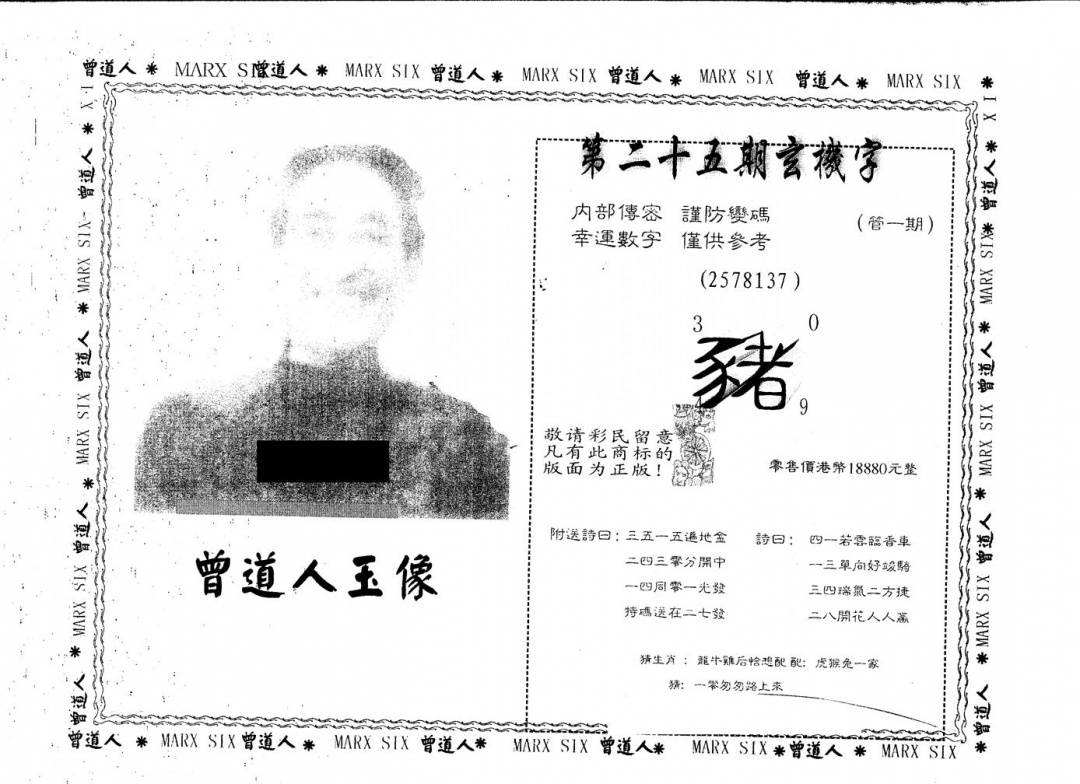 曾道人 * MARX SIX 曾道人 * MARX SIX 曾道人 * MARX SIX 曾道人 * MARX SIX 曾道人 * MARX SIX *
第二十五期玄機字
内部傳密 謹防變碼
(管一期)
幸運數字 僅供參考
(2578137)
3 0
豬
4 9
敬请彩民留意
凡有此商标的
版面为正版!
零售價港幣18880元整
附送詩曰: 三五一五遍地金
二四三零分開中
一四同零一光發
持碼送在二七發
詩曰: 四一若雲臨香車
一三單向好竣騎
三四瑞氣二方捷
二八開花人人贏
猜生肖: 龍牛雞后恰想配 配: 虎猴兔一家
猜: 一零匆匆路上來
曾道人玉像
曾道人 * MARX SIX 曾道人 * MARX SIX 曾道人 * MARX SIX 曾道人 * MARX SIX * 曾道人 * MARX SIX
IX * 曾道人 * MARX SIX- 曾道人 * MARX SIX 曾道人 * MARX SIX 曾道人 * MARX SIX 曾道人 *
IX * 曾道人 * MARX SIX * 曾道人 * MARX SIX 曾道人 * MARX SIX 曾道人 * MARX SIX * 曾道人 *